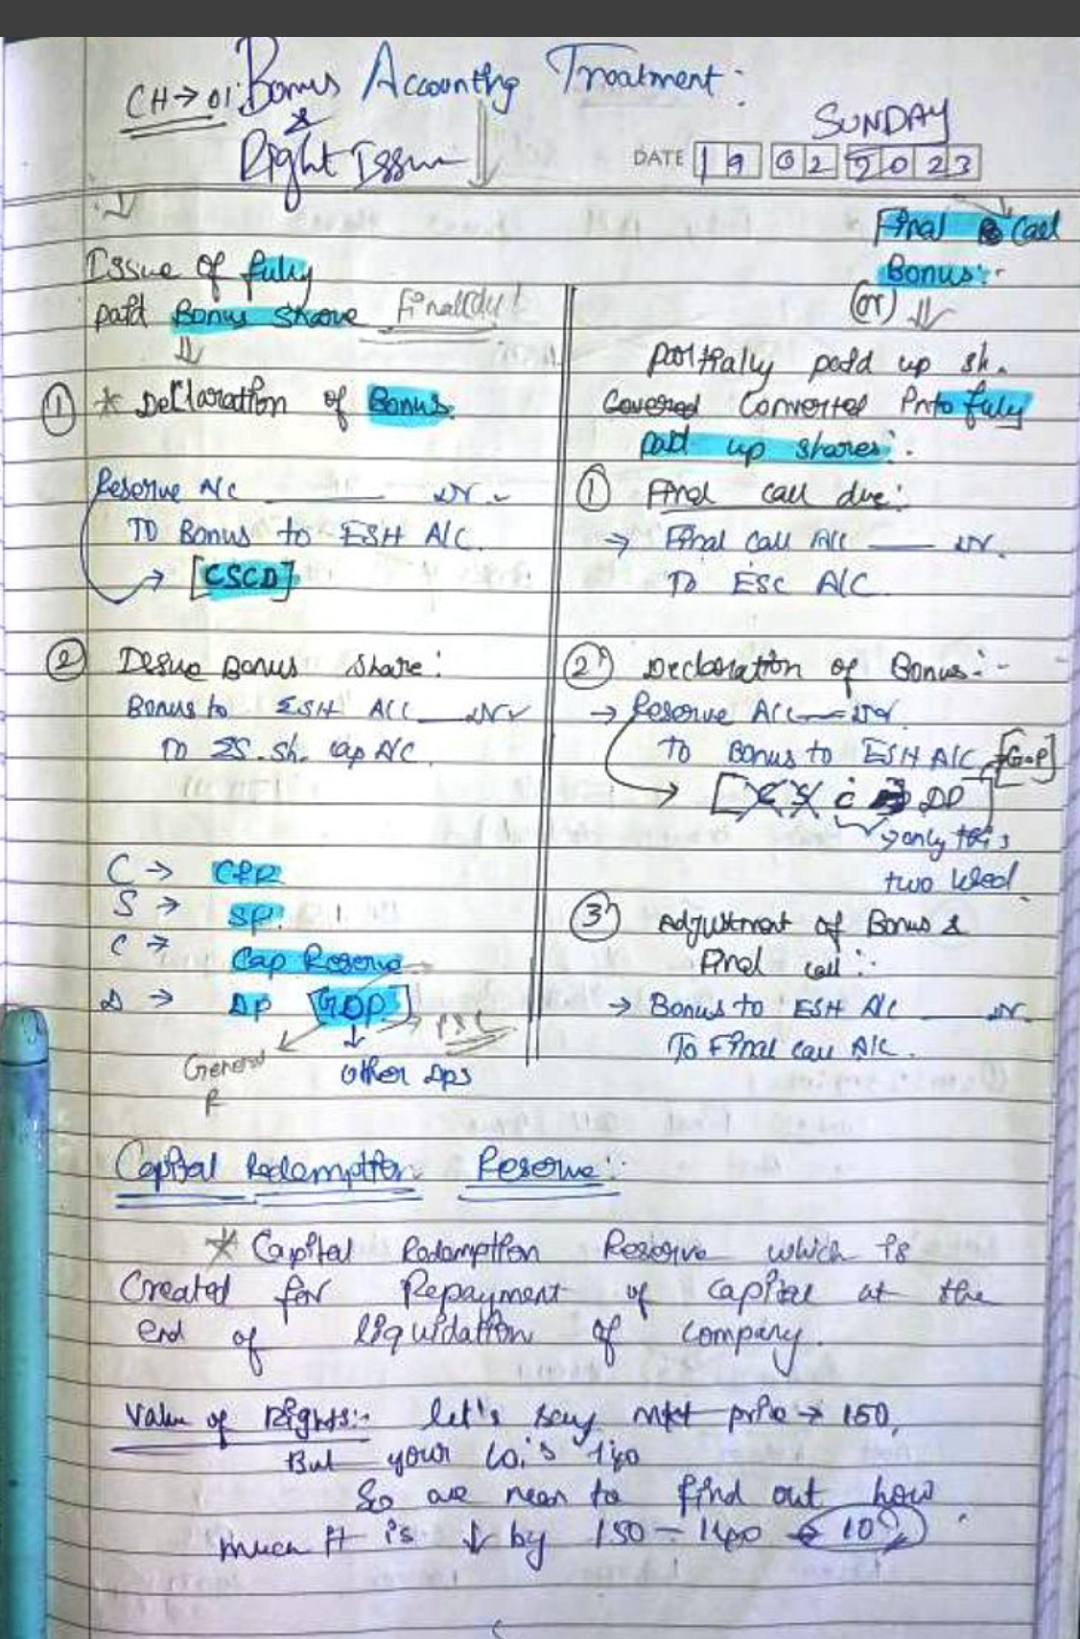 CH→01: Bonus Accounting Treatment:
&
Right Issue
SUNDAY
DATE 19 02 2023
Issue of fully
paid Bonus share
① * Declaration of Bonus.
Reserve A/c ______ Dr.
TO Bonus to ESH A/C.
→ [CSCD]
② Issue Bonus share:
Bonus to ESH A/C ____ Dr
TO ES. sh. cap A/C.
C → CRR
S → SP.
C → Cap Reserve
D → DP [GOP]
General
R
other Dps
Final Call
Bonus:-
(or)
partially paid up sh.
Covered Converted into fully
paid up shares:-
① Final call due:
→ Final call A/c ____ Dr.
TO ESC A/C.
② Declaration of Bonus:-
→ Reserve A/c ___ Dr.
TO Bonus to ESH A/C [GOP]
→ [C S C DP]
→ only this
two used
③ Adjustment of Bonus &
Final call:-
→ Bonus to ESH A/c ____ Dr.
To Final call A/c.
Capital Redemption Reserve:-
* Capital Redemption Reserve which is
Created for Repayment of capital at the
end of liquidation of company.
Value of Rights:- let's say mkt price → 150,
But your Co.'s 140
So we need to find out how
much it is ↓ by 150 - 140 → 10